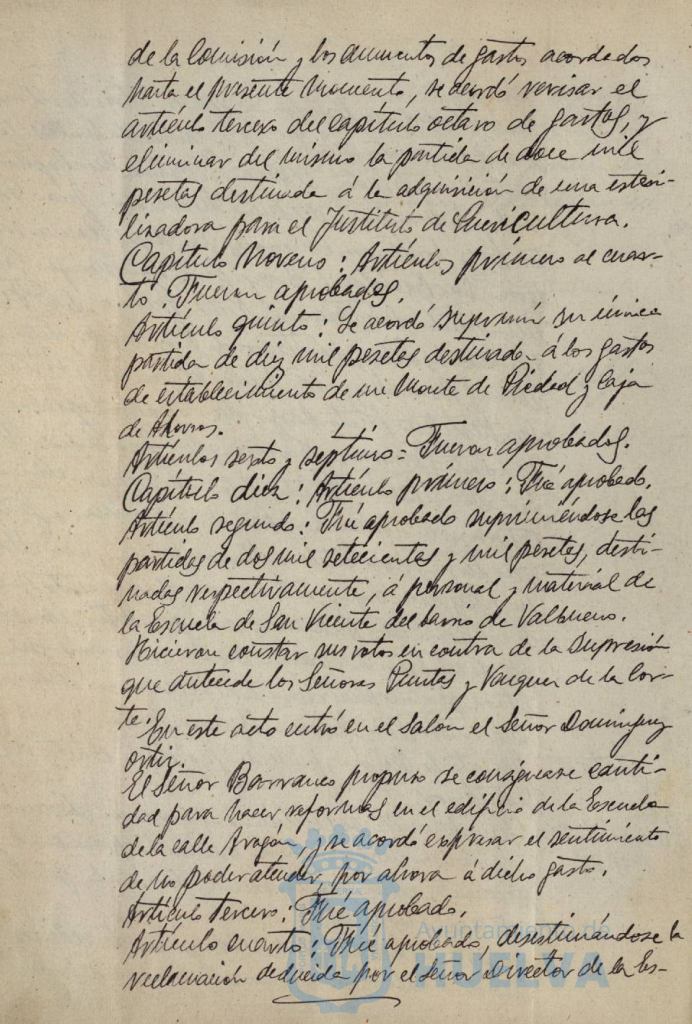 de la Comisión y los aumentos de gastos acordados
hasta el presente momento, se acordó revisar el
artículo tercero del capítulo octavo de gastos, y
eliminar del mismo la partida de doce mil
pesetas destinada á la adquisición de una esteri-
lizadora para el Instituto de Puericultura.
Capítulo Noveno: Artículos primero al cuar-
to. Fueron aprobados.
Artículo quinto: Se acordó suprimir su única
partida de diez mil pesetas destinada á los gastos
de establecimiento de un Monte de Piedad y Caja
de Ahorros.
Artículos sexto y séptimo = Fueron aprobados.
Capítulo diez: Artículo primero: Fué aprobado.
Artículo segundo: Fué aprobado suprimiéndose las
partidas de dos mil setecientas y mil pesetas, desti-
nadas respectivamente, á personal y material de
la Escuela de San Vicente del barrio de Valbueno.
Hicieron constar sus votos en contra de la supresión
que antecede los Señores Puntas y Vazquez de la Cor-
te. En este acto entró en el Salón el Señor Dominguez
Ortiz.
El Señor Barranco propuso se consignase canti-
dad para hacer reformas en el edificio de la Escuela
de la calle Aragón, y se acordó expresar el sentimiento
de no poder atender, por ahora á dicho gasto.
Artículo tercero: Fué aprobado.
Artículo cuarto: Fué aprobado, desestimándose la
reclamación deducida por el Señor Director de la Es-
Ayuntamiento de
HUELVA